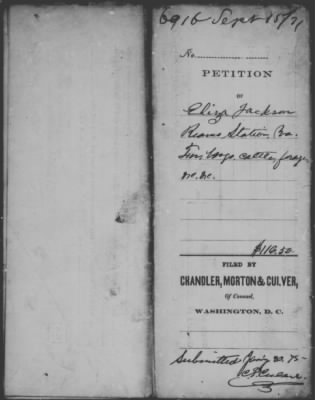 6916 Sept 15/71
No.
PETITION
OF
Eliza Jackson
Reams Station, Va.
cattle, forage
&c. &c.
$116.50
FILED BY
CHANDLER, MORTON & CULVER,
Of Counsel,
WASHINGTON, D. C.
Submitted Jany 20. 75